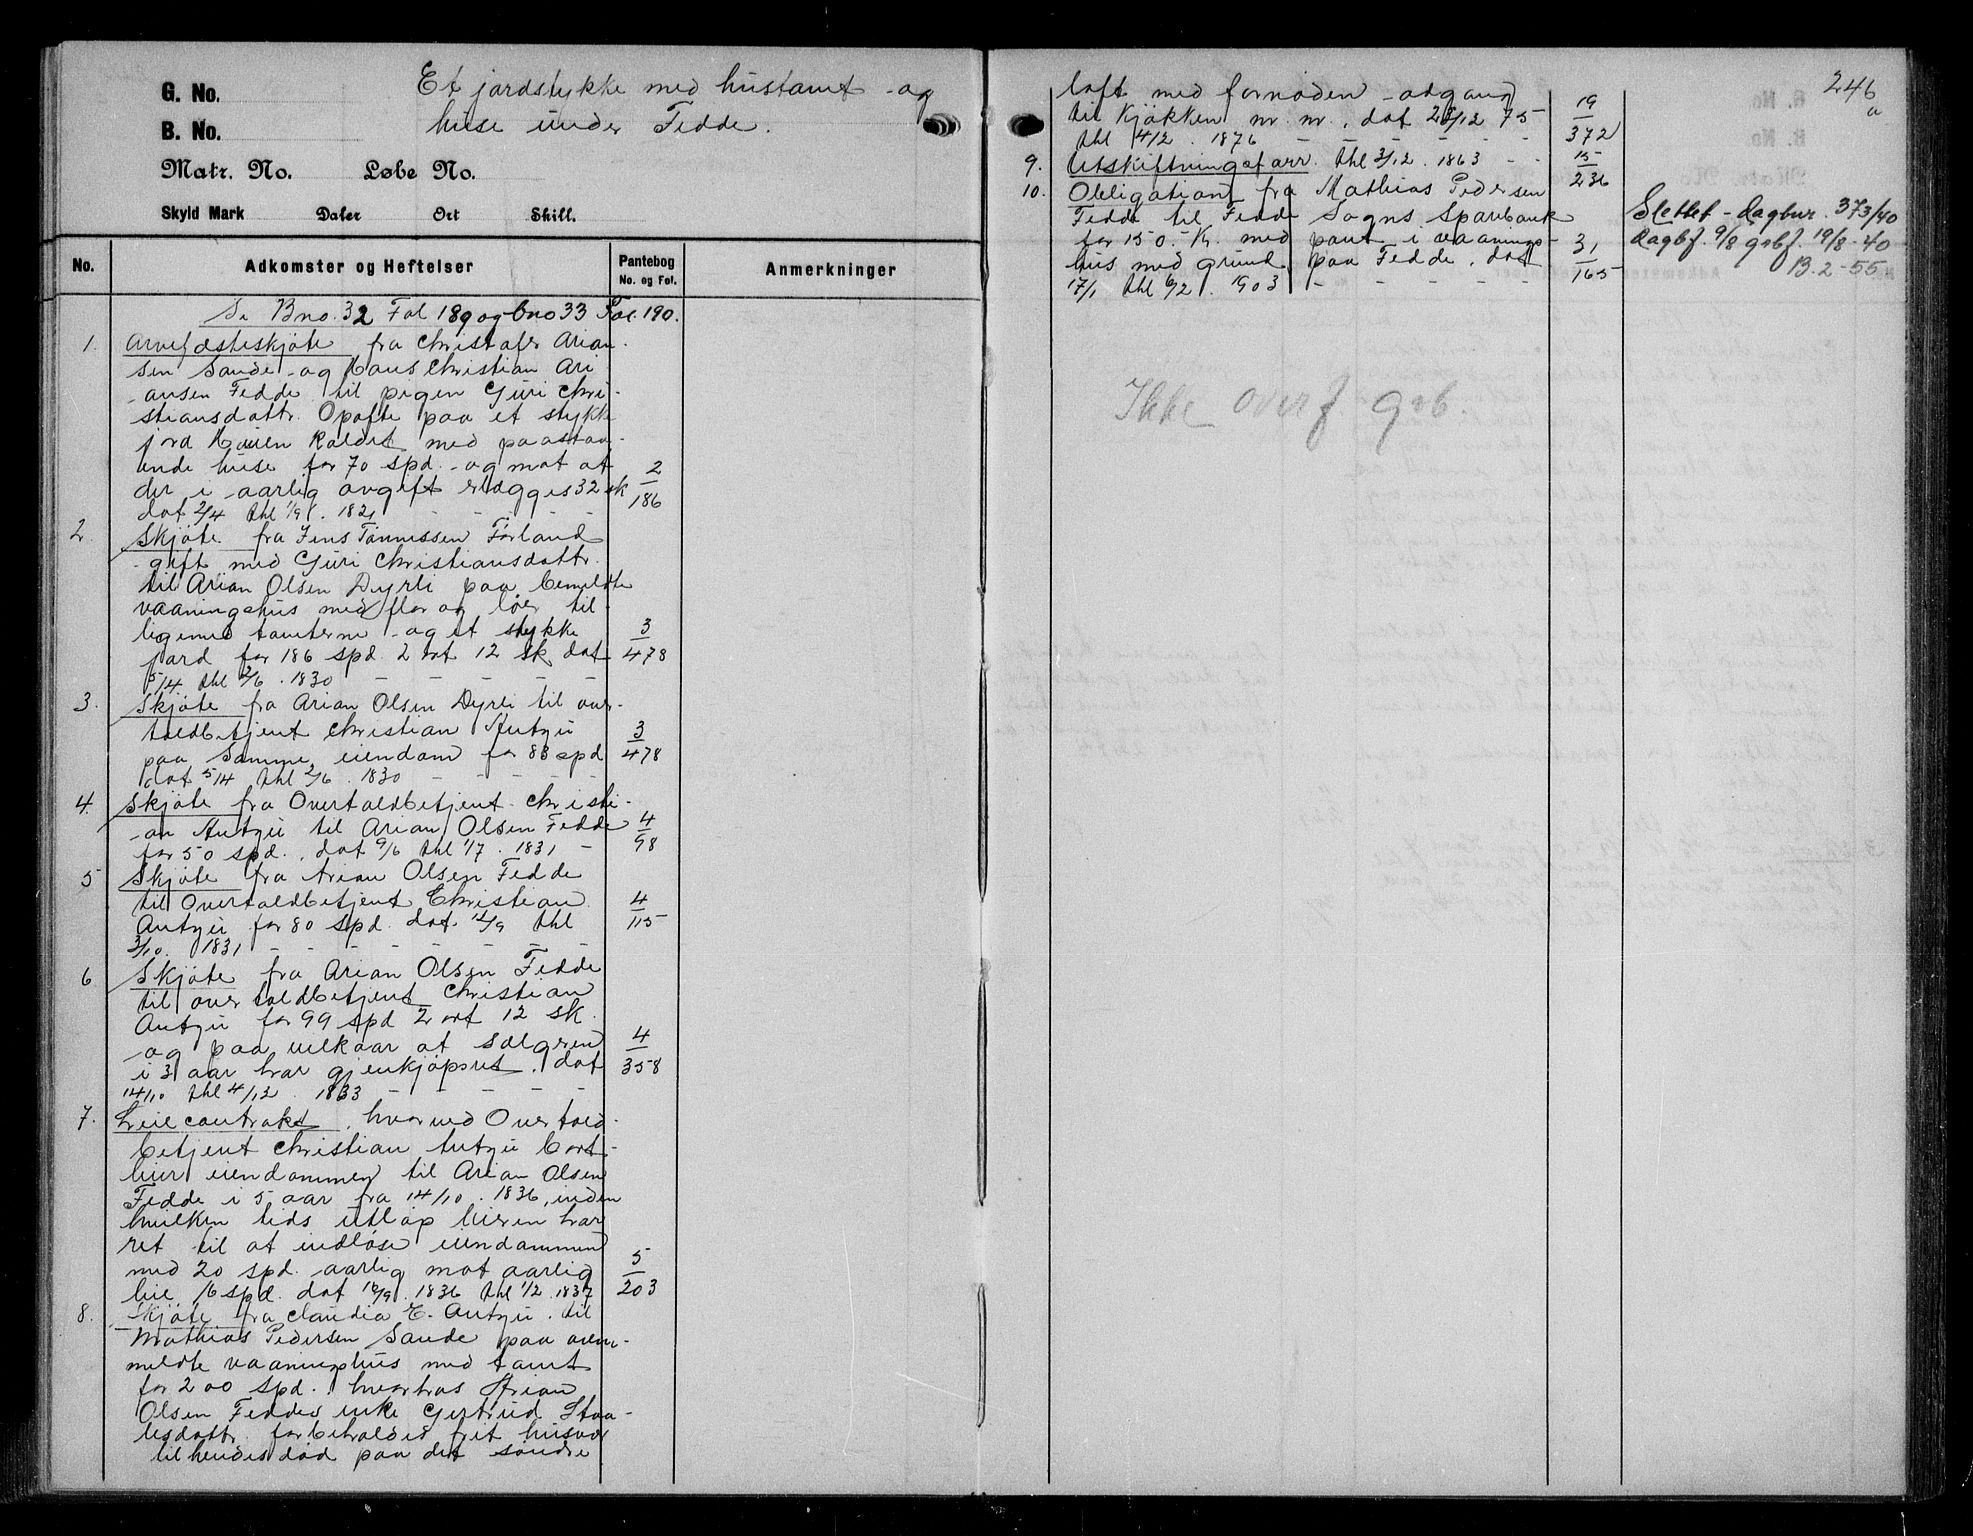 G. No.
B. No.
Matr. No. Løbe No.
Skyld Mark Daler Ort Skill.
Et jordstykke med hustomt og
huse under Fedde.
No. Adkomster og Heftelser Pantebog No. og Fol. Anmerkninger
Se Bno. 32 Fol 189 og bno 33 Fol. 190.
1. Arvefæsteskjöte fra Christofer Arian-
sen Sande og Hans Christian Ari
ansen Fedde til pigen Guri Chri-
stiansdattr. Opofte paa et stykke
jord Hauen kaldet med paastaa-
ende huse for 70 spd. og mot at
der i aarlig avgift erlægges 32 sk
dat 2/4 thl 1/9 . 1821 - - - 2/186
2. Skjöte fra Jens Tönnessen Förland
gift med Guri Christiansdattr.
til Arian Olsen Dyrli paa bemeldte
vaaningshus med flor og löe til-
ligemed tomterne og et stykke
jord for 186 spd. 2 ort 12 sk dat 3/478
5/4 thl 2/6 . 1830 - - - - -
3. Skjöte fra Arian Olsen Dyrli til over-
toldbetjent Christian Antzu
paa samme eiendom for 88 spd 3/478
dat 5/4 thl 2/6 . 1830 - - - -
4. Skjöte fra Overtoldbetjent Christi-
an Antzu til Arian Olsen Fedde
for 50 spd. , dat 9/6 thl 1/7 . 1831 - 4/98
5 Skjöte fra Arian Olsen Fedde
til Overtoldbetjent Christian
Antzu for 80 spd. dat. 12/9 thl 4/115
3/10. 1831 - - - - - - -
6 Skjöte fra Arian Olsen Fedde
til overtoldbetjent Christian
Antzu for 99 spd 2 ort 12 sk.
og paa vilkaar at sælgeren
i 3 aar har gjenkjöpsret . dat 4/358
14/10 thl 4/12 . 1833 - - - - -
7. Leiecontrakt , hvorved Overtold-
betjent Christian Antzu bort-
leier eiendommen til Arian Olsen
Fedde i 5 aar fra 14/10 . 1836, inden
hvilken tids utlöp leieren har
ret til at indlöse eiendommen
med 20 spd. aarlig mot aarlig
leie 16 spd. dat 16/9 . 1836 thl 1/2 . 1837 5/203
8. Skjöte fra Claudia E. Antzu . til
Mathias Pedersen Sande paa oven-
meldte vaaningshus med tomt
for 200 spd. , hvorhos Arian
Olsen Feddes enke Gertrud Staa-
lesdattr. forbeholdes frit husvær
til hendes död paa det söndre
246
a
loft med fornöden adgang
til Kjökken m. m. , dat 28/12 75 19/372
thl 4/2 . 1876 - - - - - -
9. Utskiftningsforr. thl 3/12 . 1863 - - 15/236
10. Obligation fra Mathias Pedersen
Fedde til Fedde Sogns Sparebank
for 150.- Kr. med pant i vaanings-
hus med grund paa Fedde , dat 31/165
17/1 thl 6/2 . 1903 - - - - -
Slettet - dagbnr. 373/40
dagbf. 9/8 grbf. 19/8 - 40
B. 2 - 55
Ikke overf grb.